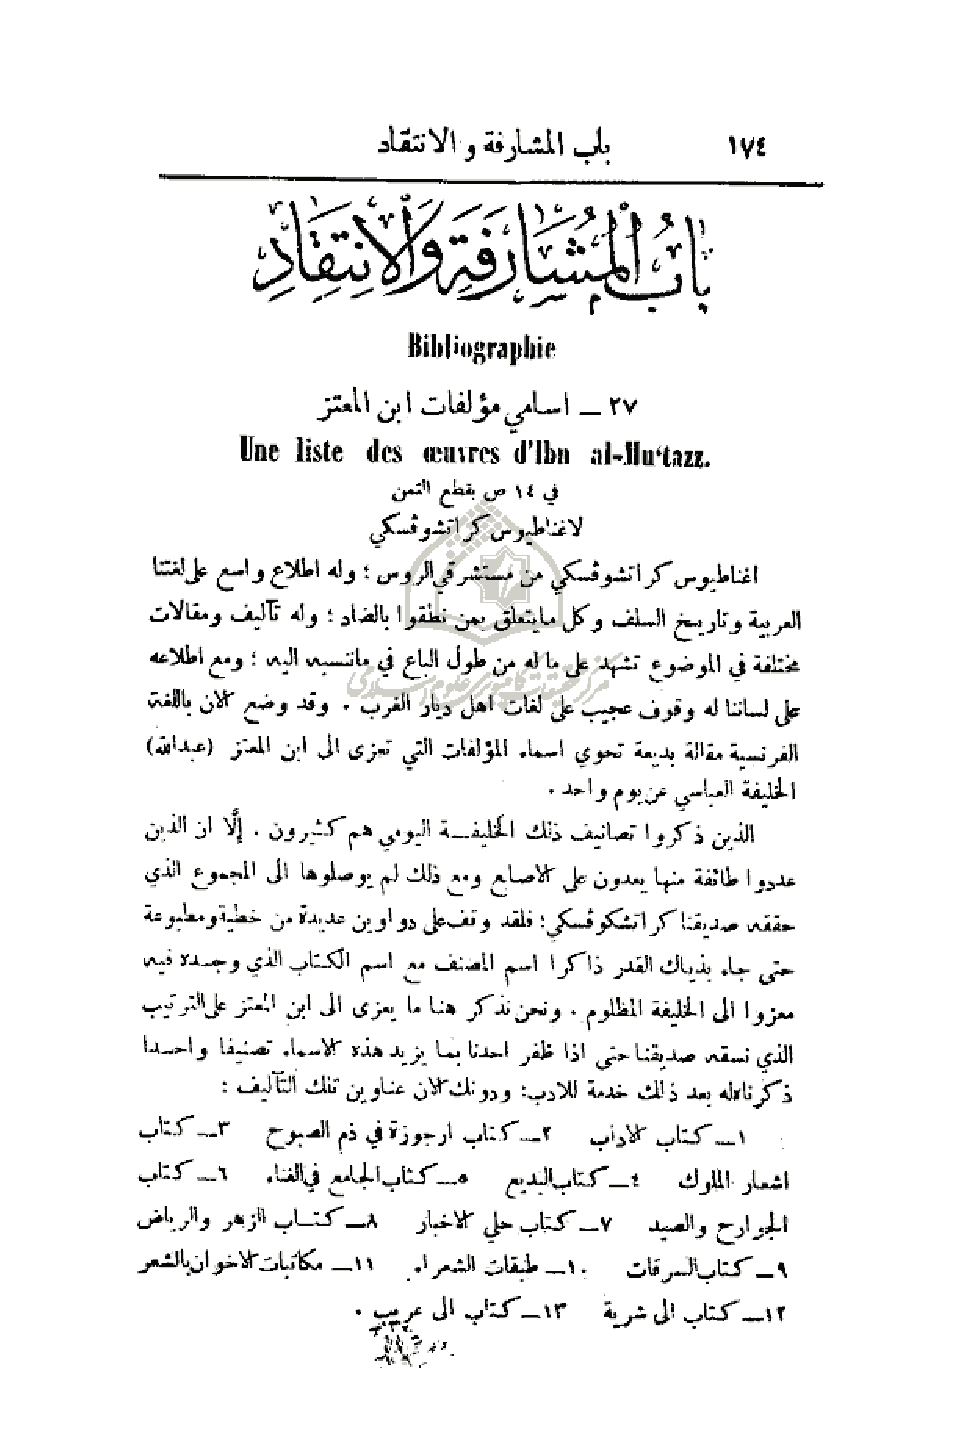 ١٧٤ باب المشارفة والانتقاد
بَابُ المُشَارَفَةِ وَالاِنتِقَادِ
Bibliographie
٢٧ — اسامي مؤلفات ابن المعتز
Une liste des œuvres d'Ibn al-Mu‘tazz.
في ١٤ ص بقطع الثمن
لاغناطيوس كراتشوڤسكي
اغناطيوس كراتشوڤسكي من مستشرقي الروس ؛ وله اطلاع واسع على لغتنا
العربية وتاريخ السلف وكل مايتعلق بمن نطقوا بالضاد ؛ وله تآليف ومقالات
مختلفة في الموضوع تشهد على ما له من طول الباع في ماننسبه اليه ؛ ومع اطلاعه
على لساننا له وقوف عجيب على لغات اهل ديار الغرب . وقد وضع كلان باللغة
الفرنسية مقالة بديعة تحوي اسماء المؤلفات التي تعزى الى ابن المعتز (عبدالله)
الخليفة العباسي عن يوم واحد .
الذين ذكروا تصانيف ذلك الخليفة اليومي هم كثيرون . إلّا ان الذين
عددوا طائفة منها يعدون على كلاصابع ومع ذلك لم يوصلوها الى المجموع الذي
حققه صديقنا كراتشكوڤسكي ؛ فلقد وقف على دواوين عديدة من خطية ومطبوعة
حتى جاء بذياك القدر ذاكرا اسم المصنف مع اسم الكتاب الذي وجده فيه
معزوا الى الخليفة المظلوم . ونحن نذكر هنا ما يعزى الى ابن المعتز على الترتيب
الذي نسقه صديقنا حتى اذا ظفر احدنا بما يزيد هذه كلاسماء تصنيفا واحدا
ذكرناه له بعد ذلك خدمة للادب؛ ودونك كلان عناوين تلك التآليف :
١ — كتاب كلاداب ٢ — كتاب ارجوزة في ذم الصبوح ٣ — كتاب
اشعار الملوك ٤ — كتاب البديع ٥ — كتاب الجامع في الغناء ٦ — كتاب
الجوارح والصيد ٧ — كتاب حلي كلاخبار ٨ — كتاب الزهر والرياض
٩ — كتاب السرقات ١٠ — طبقات الشعراء ١١ — مكاتبات كلاخوان بالشعر
١٢ — كتاب الى شرية ١٣ — كتاب الى عريب .